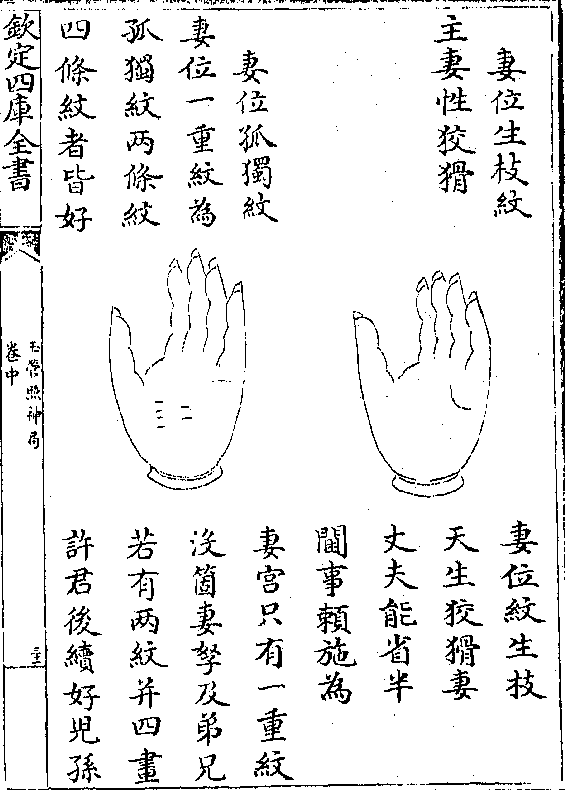 妻位生枝紋
主妻性狡猾
妻位紋生技
天生狡猾妻
丈夫能省半
閫事頼施為
妻位孤獨紋
妻位一重紋為
孤獨紋两條紋
四條紋者皆好
妻宫只有一重紋
没箇妻孥及弟兄
若有两紋并四畫
許君後續好兒孫
欽定四庫全書
玉管照神局
卷中